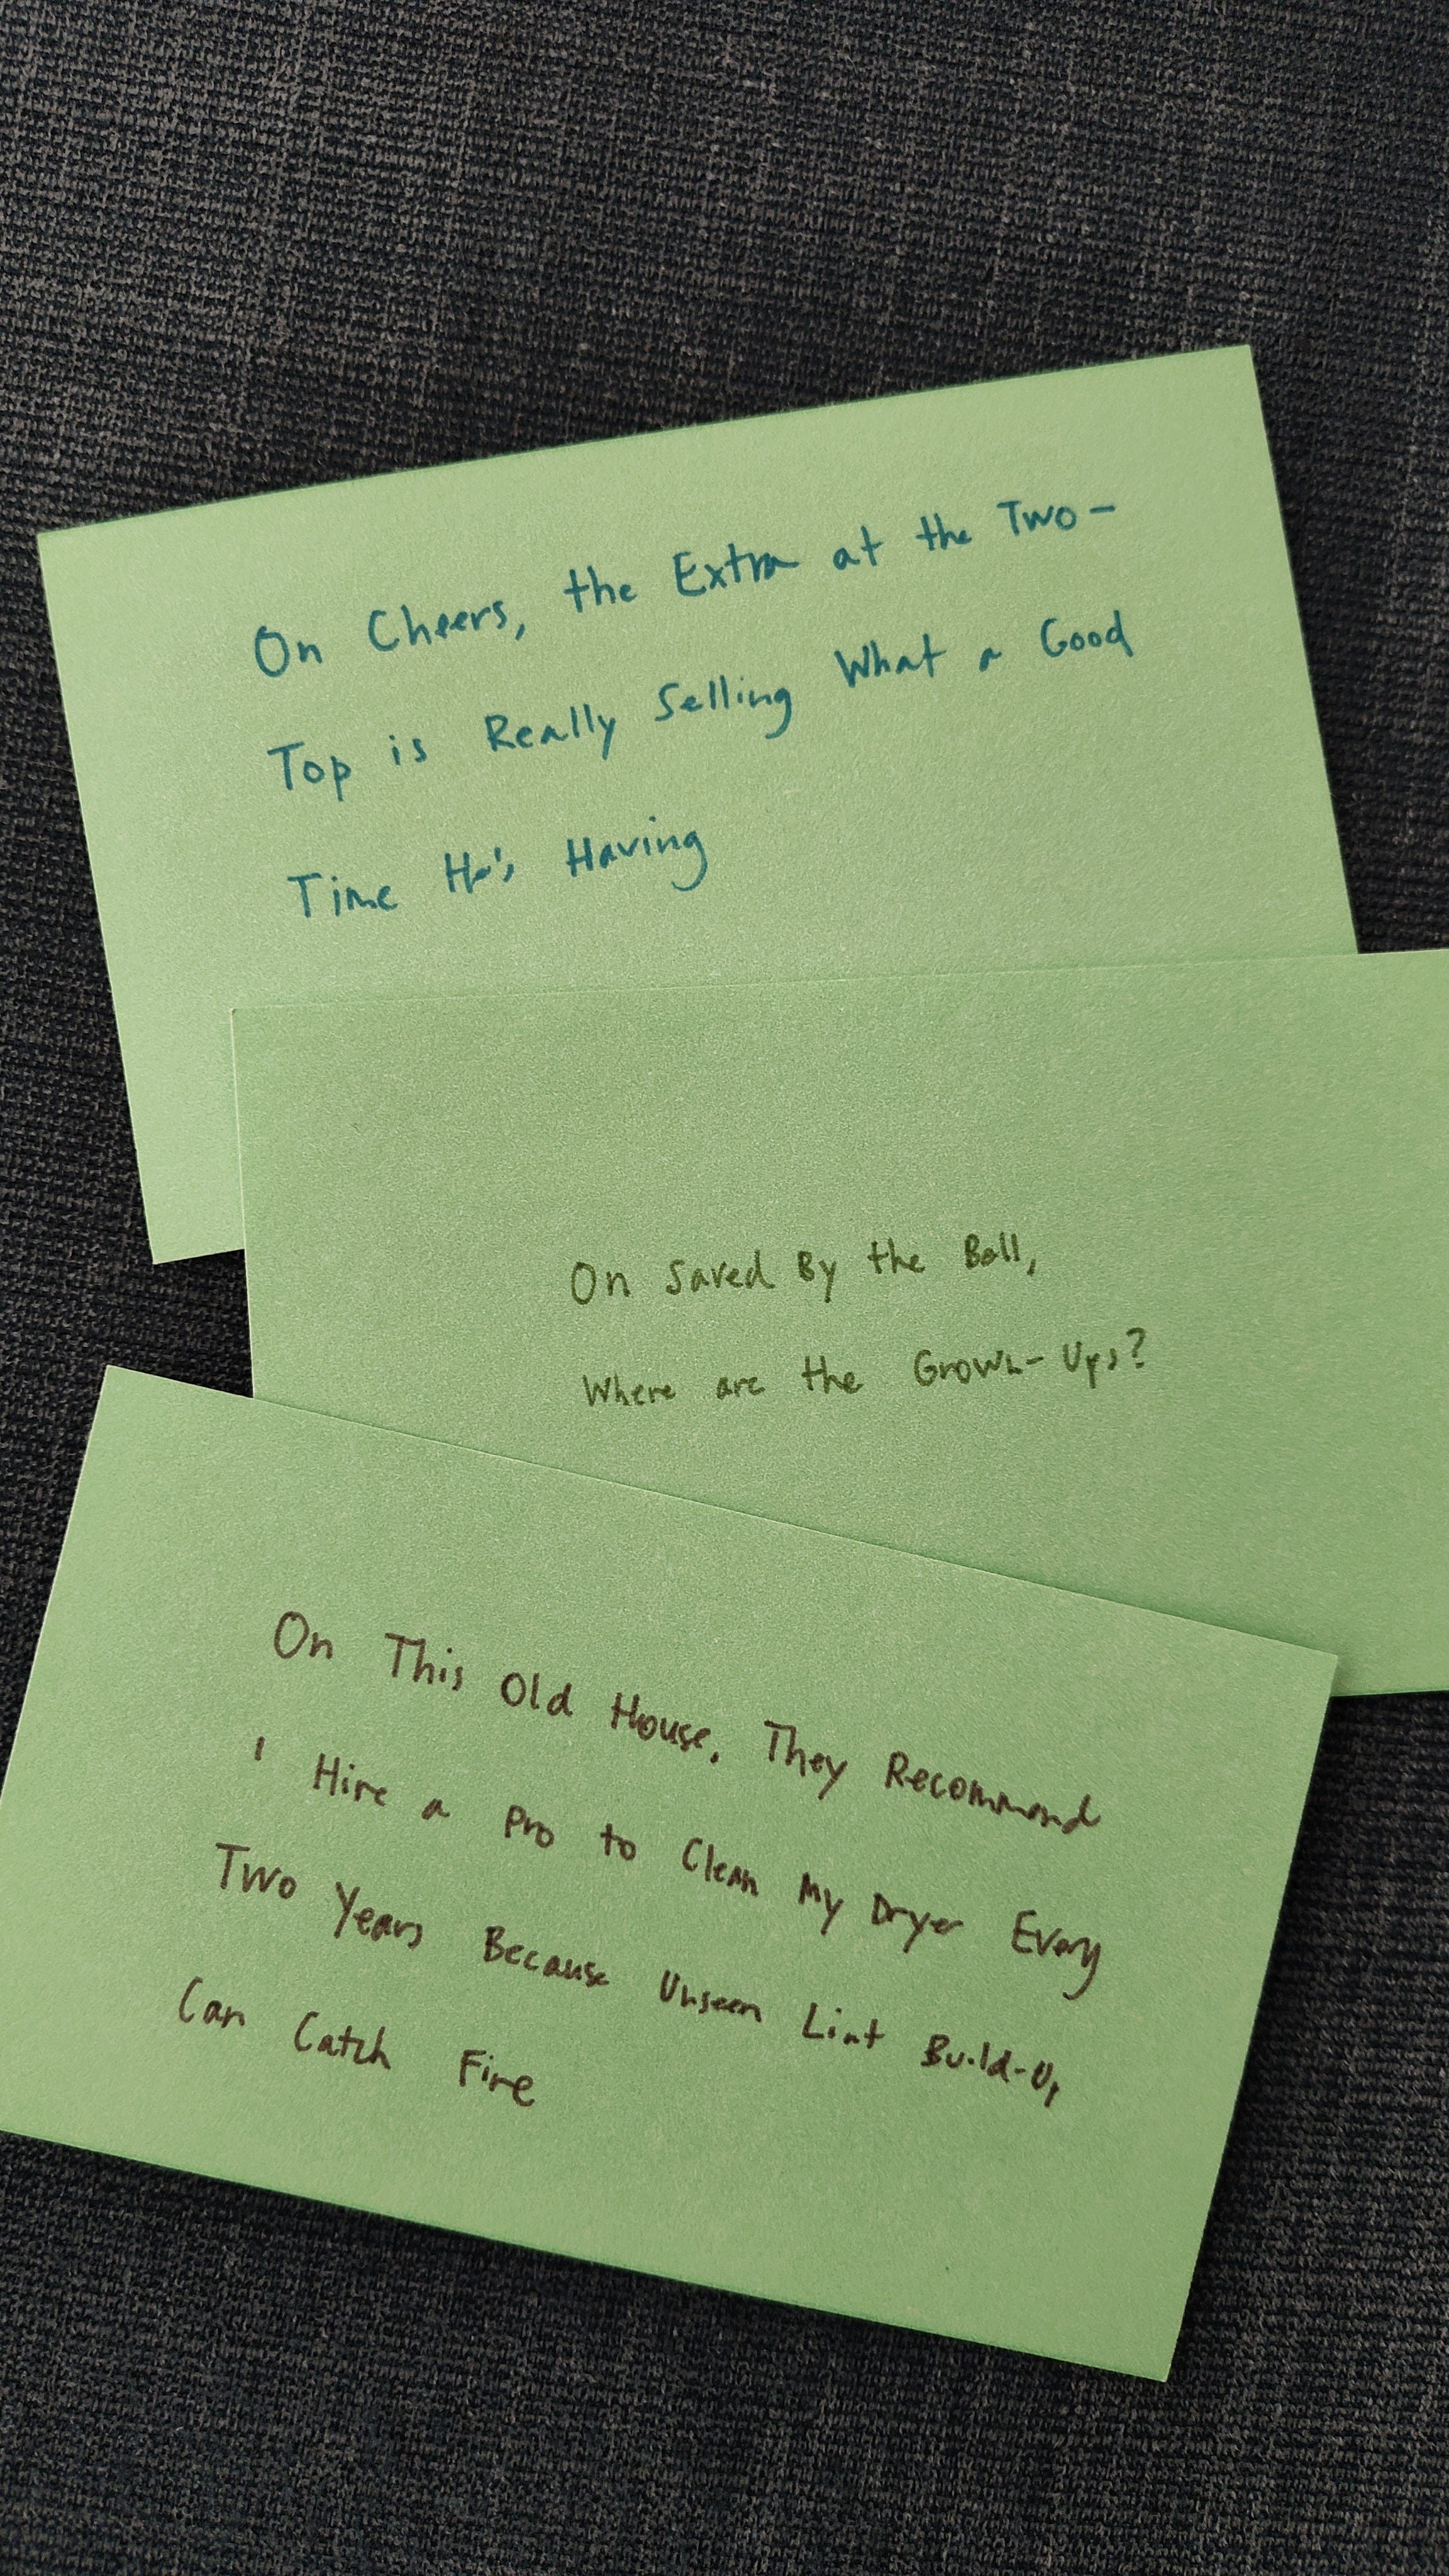 On Cheers, the Extra at the Two-
Top is Really Selling What a Good
Time He's Having
On Saved By the Bell,
Where are the Grown-Ups?
On This Old House, They Recommend
I Hire a Pro to Clean My Dryer Every
Two Years Because Unseen Lint Build-Up
Can Catch Fire